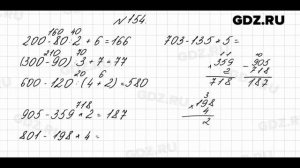 GDZ.RU
№154
160 40
200-80·2+6=166
210 70
(300-90):3+7=77
20 6
600-120:(4+2)=580
718
905-359×2=187
801-198×4=
703-135×5=
×359
2
718
-905
718
187
×198
4
2
GDZ.RU